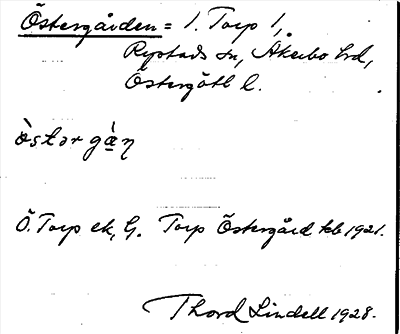 Östergården = 1. Torp 1,
Rystads sn, Åkerbo hd,
Östergötl l.
ò̀stər gæ̀ṇ
Ö. Torp ek, G. Torp Östergård kb 1921.
Thord Lindell 1928.